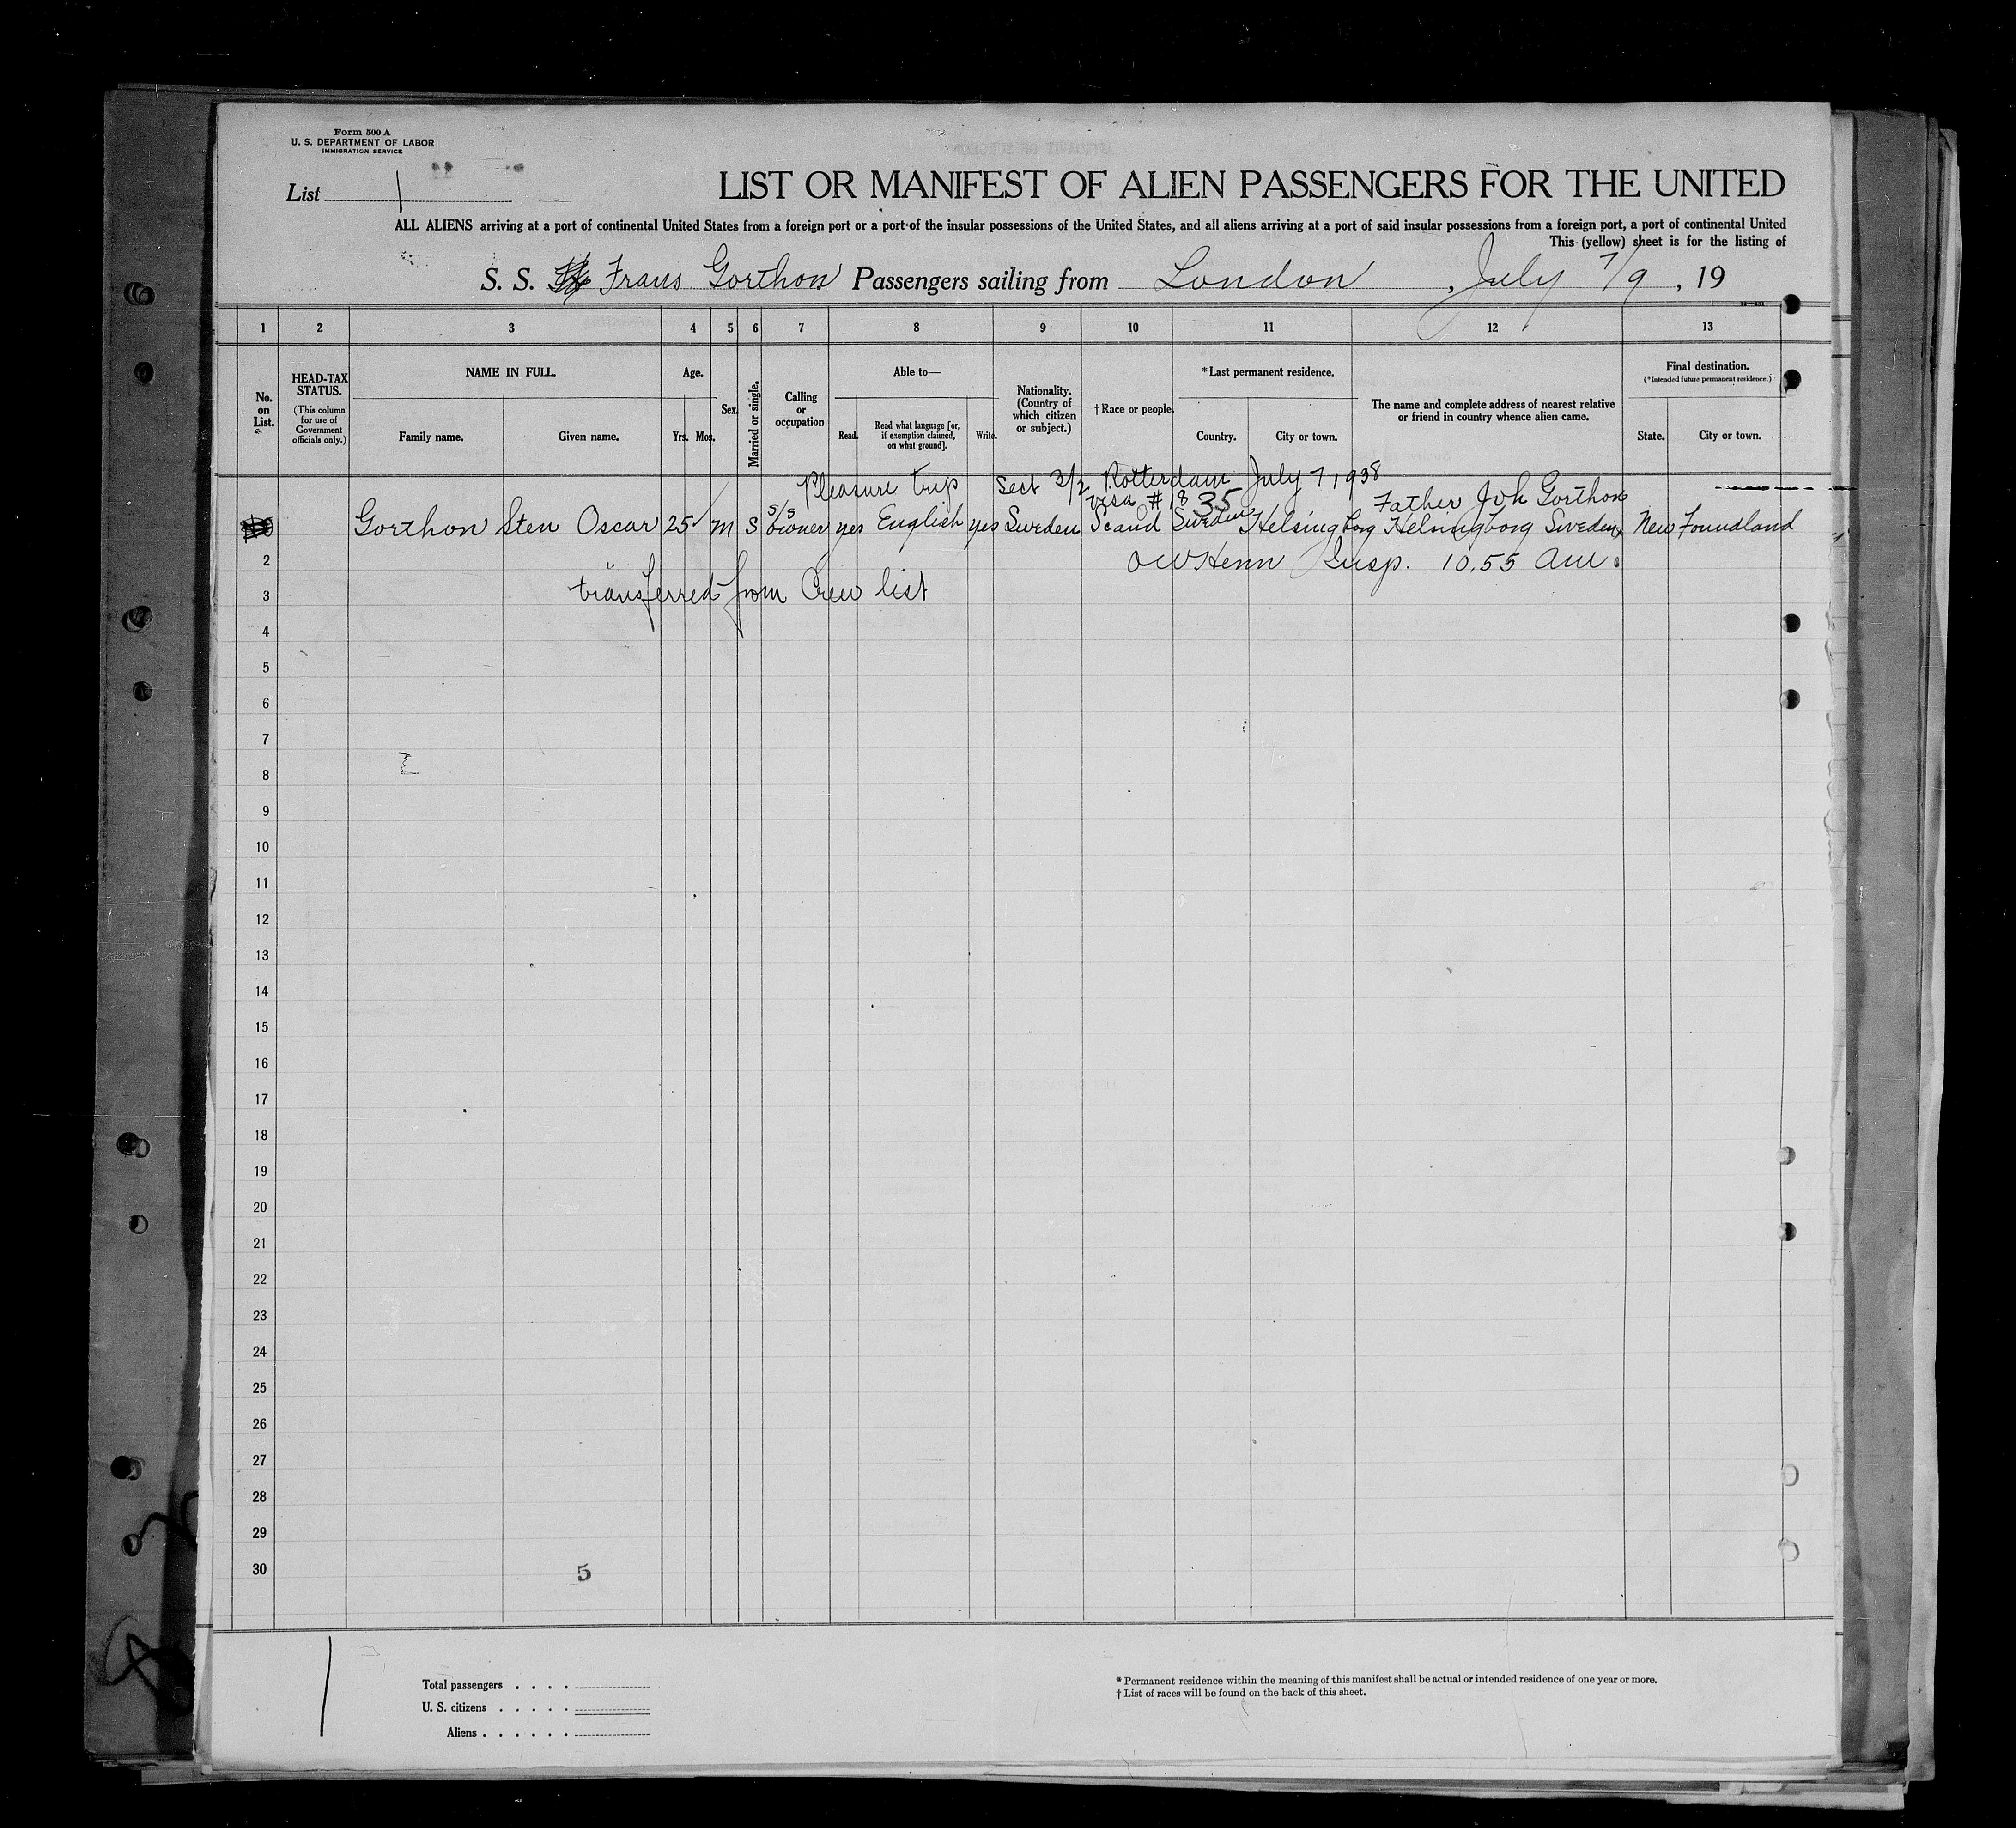 Form 500 A
U. S. DEPARTMENT OF LABOR
IMMIGRATION SERVICE
List 1
LIST OR MANIFEST OF ALIEN PASSENGERS FOR THE UNITED
ALL ALIENS arriving at a port of continental United States from a foreign port or a port of the insular possessions of the United States, and all aliens arriving at a port of said insular possessions from a foreign port, a port of continental United
This (yellow) sheet is for the listing of
S. S. Frans Gorthon Passengers sailing from London, July 7/9, 19
1 2 3 4 5 6 7 8 9 10 11 12 13
No. on List.
HEAD-TAX STATUS.
(This column for use of Government officials only.)
NAME IN FULL.
Family name. Given name.
Age.
Yrs. Mos.
Sex.
Married or single.
Calling or occupation
Able to—
Read. Read what language [or, if exemption claimed, on what ground]. Write.
Nationality. (Country of which citizen or subject.)
†Race or people.
*Last permanent residence.
Country. City or town.
The name and complete address of nearest relative or friend in country whence alien came.
Final destination.
(*Intended future permanent residence.)
State. City or town.
Pleasure trip Sect 3/2 Rotterdam July 7 1938
Visa # 1835 Father Joh Gorthon
Gorthon Sten Oscar 25 m S S/S owner yes English yes Sweden Scand Sweden Helsingborg Helsingborg Sweden New Foundland
2 Insp. 10.55 am.
3 transferred from Crew list
4
5
6
7
8
9
10
11
12
13
14
15
16
17
18
19
20
21
22
23
24
25
26
27
28
29
30
5
Total passengers . . . .
U. S. citizens . . . . .
Aliens . . . . . .
* Permanent residence within the meaning of this manifest shall be actual or intended residence of one year or more.
† List of races will be found on the back of this sheet.